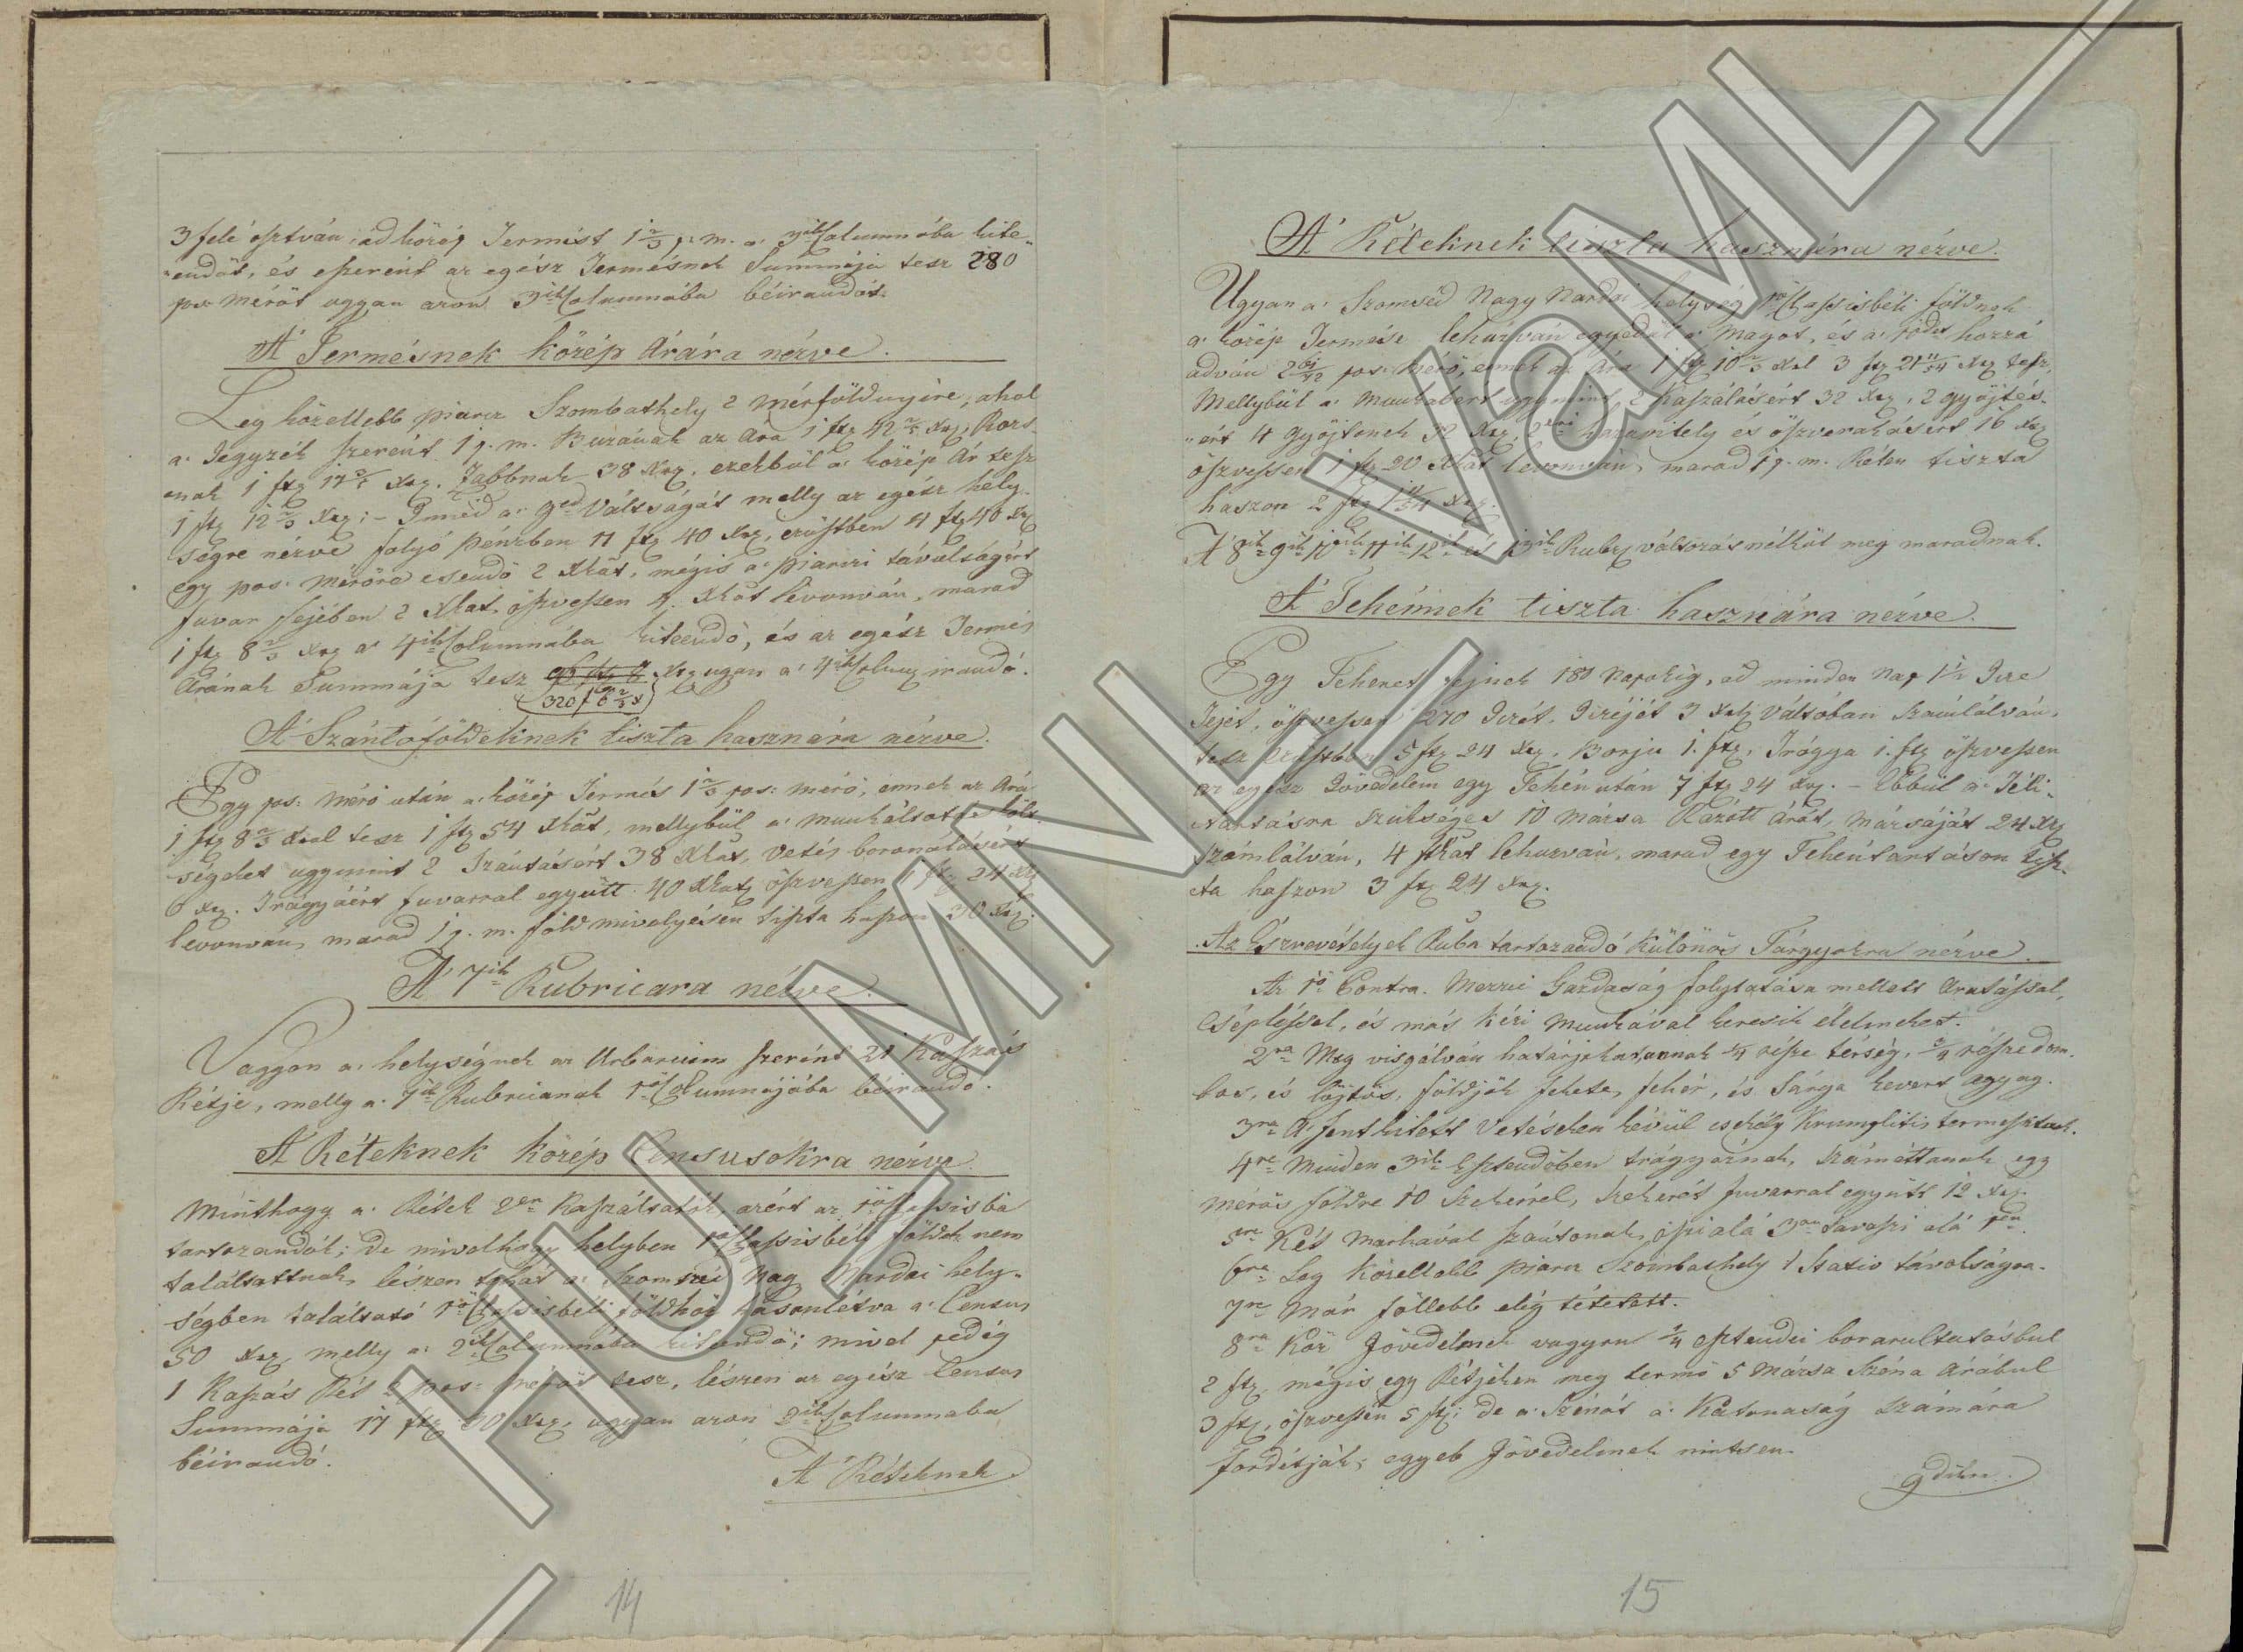 3 felé osztván ád közép Termést 1 2/3 p. m. a' 3ik Columnába kite„
„endőt, és eszerént az egész Termésnek Summája tesz 280
pos mérőt ugyan azon 3ik Columnába béirandót.
A' Termésnek közép Árára nézve.
Leg közellebb piarcz Szombathely 2 mérföldnyire, ahol
a' Jegyzék szerént 1 p. m. Buzának az Ára 1 ftg 42 xrg, Rozs„
anak 1 ftg 17 xrg. Zabbnak 38 xrg. ezekbül a' közép Ár tesz
1 ftg 12 2/3 xrg; – Innéd a' 9ed Váltságát melly az egész hely„
ségre nézve folyó pénzben 11 ftg 40 xrg, ezüstben 4 ftg 40 xrg
egy pos. mérőre esendő 2 xkát, mégis a' piarczi távulságért
fuvar fejében 2 xkat, öszvessen 4. xkát lévonván, marad
1 ftg 8 2/3 xrg a' 4ik Columnába kiteendő, és az egész Termés
Árának Summája tesz xrg ugyan a' 4ik Colum irandó.
320 f 26 2/3 x
A' Szántóföldeknek tiszta hasznára nézve.
Egy pos: mérő után a' közép Termés 1 2/3 pos: mérő, ennek az Ára
1 ftg 8 2/3 xral tesz 1 ftg 54 xkát, mellybül a' munkáltatás költ„
ségeket ugymint 2 Szántásért 38 xkat, Vetés boronálásért
6 xrg. Trágyáért fuvarral együtt 40 xkat, öszvessen 1 ftg 24 xrg
levonván marad 1 p. m. föld mivelyésen tiszta haszon 30 xrg.
A' 7ik Rubricara nézve.
Vagyon a' helységnek az Urbarium szerént 21 Kaszás
Rétje, melly a' 7ik Rubricanak 1ső Columnájába béirandó.
A' Réteknek közép Censusokra nézve
Minthogy a' Rétek 2szer Kaszáltatók, azért az 1ső Classisba
tartozandók; de mivelhogy helyben 1ső Classisbéli földek nem
találtattnak, lészen tehát a' szomszéd Nagy Nardai hely„
ségben találtató 1ső Classisbéli földhöz hasonlétva a' Census
50 xrg melly a' 2ik Columnába kiteendő; mivel pedég
1 Kaszás Rét pos: mérőt tesz, lészen az egész Census
Summája 17 ftg 30 xrg, ugyan azon 2ik Columnaba
béirandó.
A' Réteknek
14
A' Réteknek tiszta hasznára nézve.
Ugyan a' Szomséd Nagy Nardai helység 1ső Classisbéli földnek
a' közép Termése lehúzván egyedül a' Magot, és a' hozzá
adván pos: Mérő, ennek az Ára 1 ftg 10 2/3 xral 3 ftg 21 xrg tesz,
Mellybül a' Munkabért ugymint 2 Kaszálásért 32 xrg, 2 gyöjtés„
„ért 4 gyöjtőnek 32 xrg, 2szeri bézavitely és öszverakásért 16 xrg
öszvessen 1 ftg 20 xkát levonván, marad 1 p. m. Réten tiszta
haszon 2 ftg xrg.
A' 8ik 9ik 10ik 11ik 12ik és 13ik Rubrg változás nélkül meg maradnak.
A' Tehénnek tiszta hasznára nézve.
Egy Tehenet fejnek 180 Napokig, ád minden Nap 1 1/2 Icze
Tejet, öszvessen 270 Iczét. Iczéjét 3 xral Váltóban számlálván,
tesz ezüstben 5 ftg 24 xrg. Borju 1. ftg, Trágya 1. ftg öszvessen
az egész Jövedelem egy Tehén után 7 ftg 24 xrg. – Ebbül a' Téli„
tartásra szükséges 10 mársa Razott árát, mársáját 24 xrg
számlálván, 4 ftkat lehuzván, marad egy Tehéntartáson tisz„
ta haszon 3 ftg 24 xrg.
Az Észrevételyek Ruba tartozandó Különös Tárgyakra nézve.
Az 1ső Contra. Mezzei Gazdaság folytatása mellett Aratással,
Csépléssel, és más kézi Munkával keresik élelmeket.
2ra Meg visgálván határjokat annak 1/4 része térség, 3/4 része dom„
bos, és lojtös, földjök fekete, fehér, és sárga kevert agyag.
3ra A' fent kitett Vetéseken kévül csekély Krumplitis termesztnek.
4re Minden 3ik Esztendőben trágyáznak, számétanak egy
mérős földre 10 Szekérrel, Szekerét fuvarral együtt 12 xrg.
5re Két Markával szántonak, őszi alá 3szor tavaszi alá 1szer.
6ra Leg közellebb piarcz Szombathely 1 Statio távolságra.
7re Már föllebb elég tétetett.
8ra Köz Jövedelmek vagyon 1/4 esztendei borarultatásbul
2 ftg, mégis egy Rétjeken meg termő 5 Mársa Széna Árábul
3 ftg, öszvessen 5 ftg; de a' Szénát a' Katonaság számára
fordétják; egyéb Jövedelmek nintsen.
9dikre.
15
HU MNL VaML